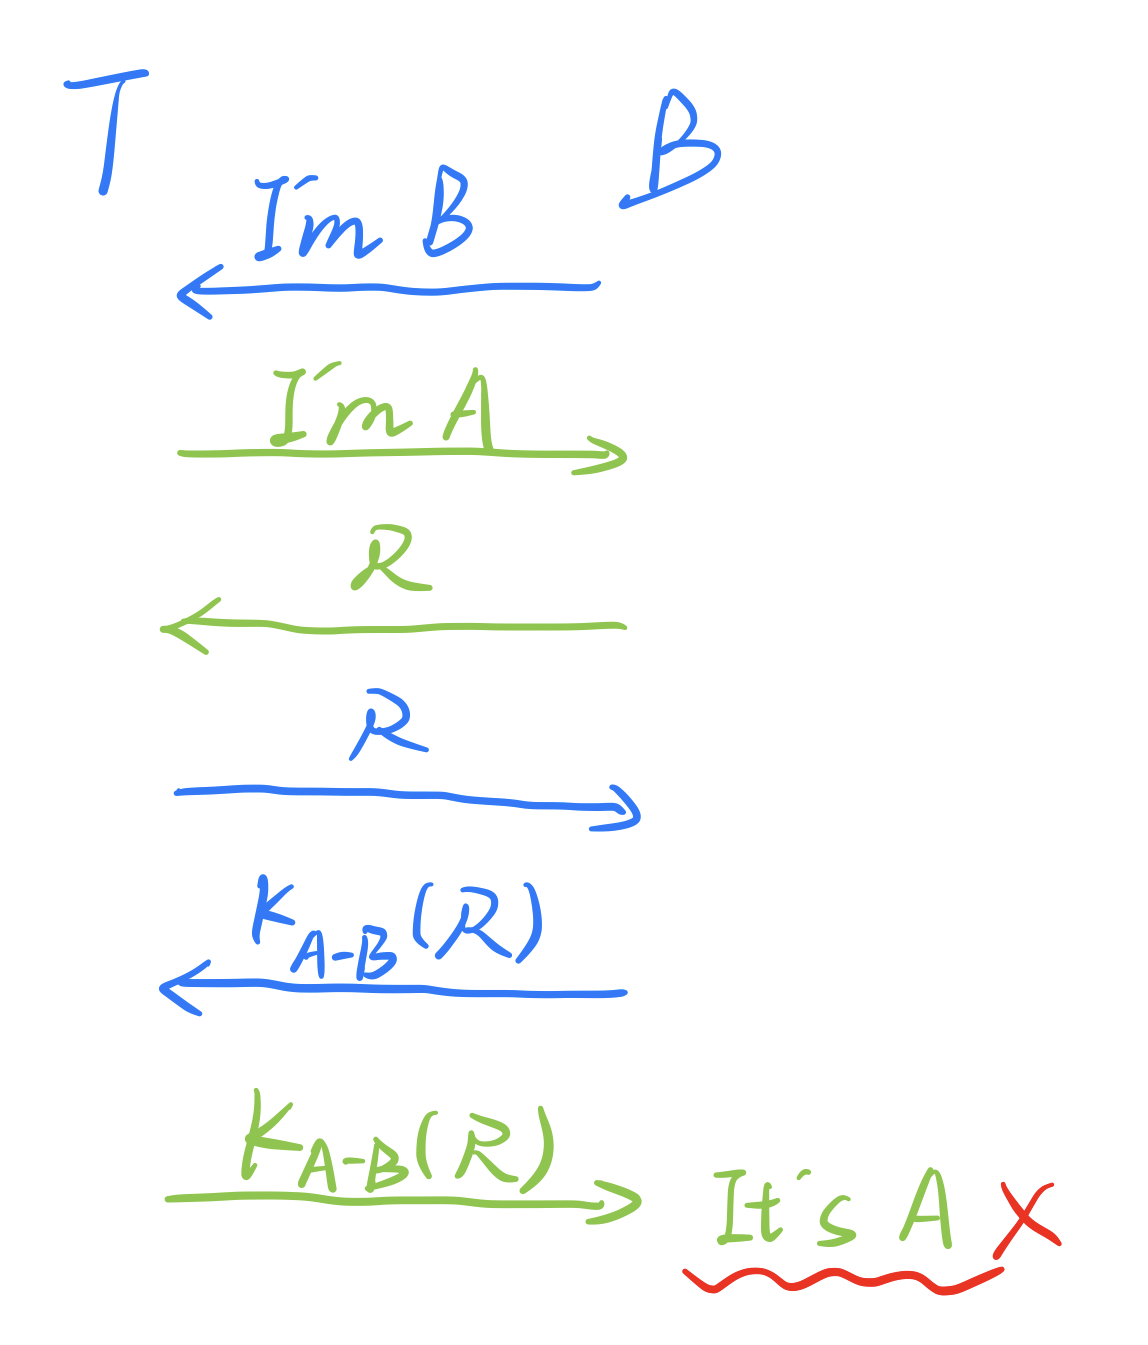 T B
I'm B
I'm A
R
R
K_{A-B}(R)
K_{A-B}(R)
It's A X